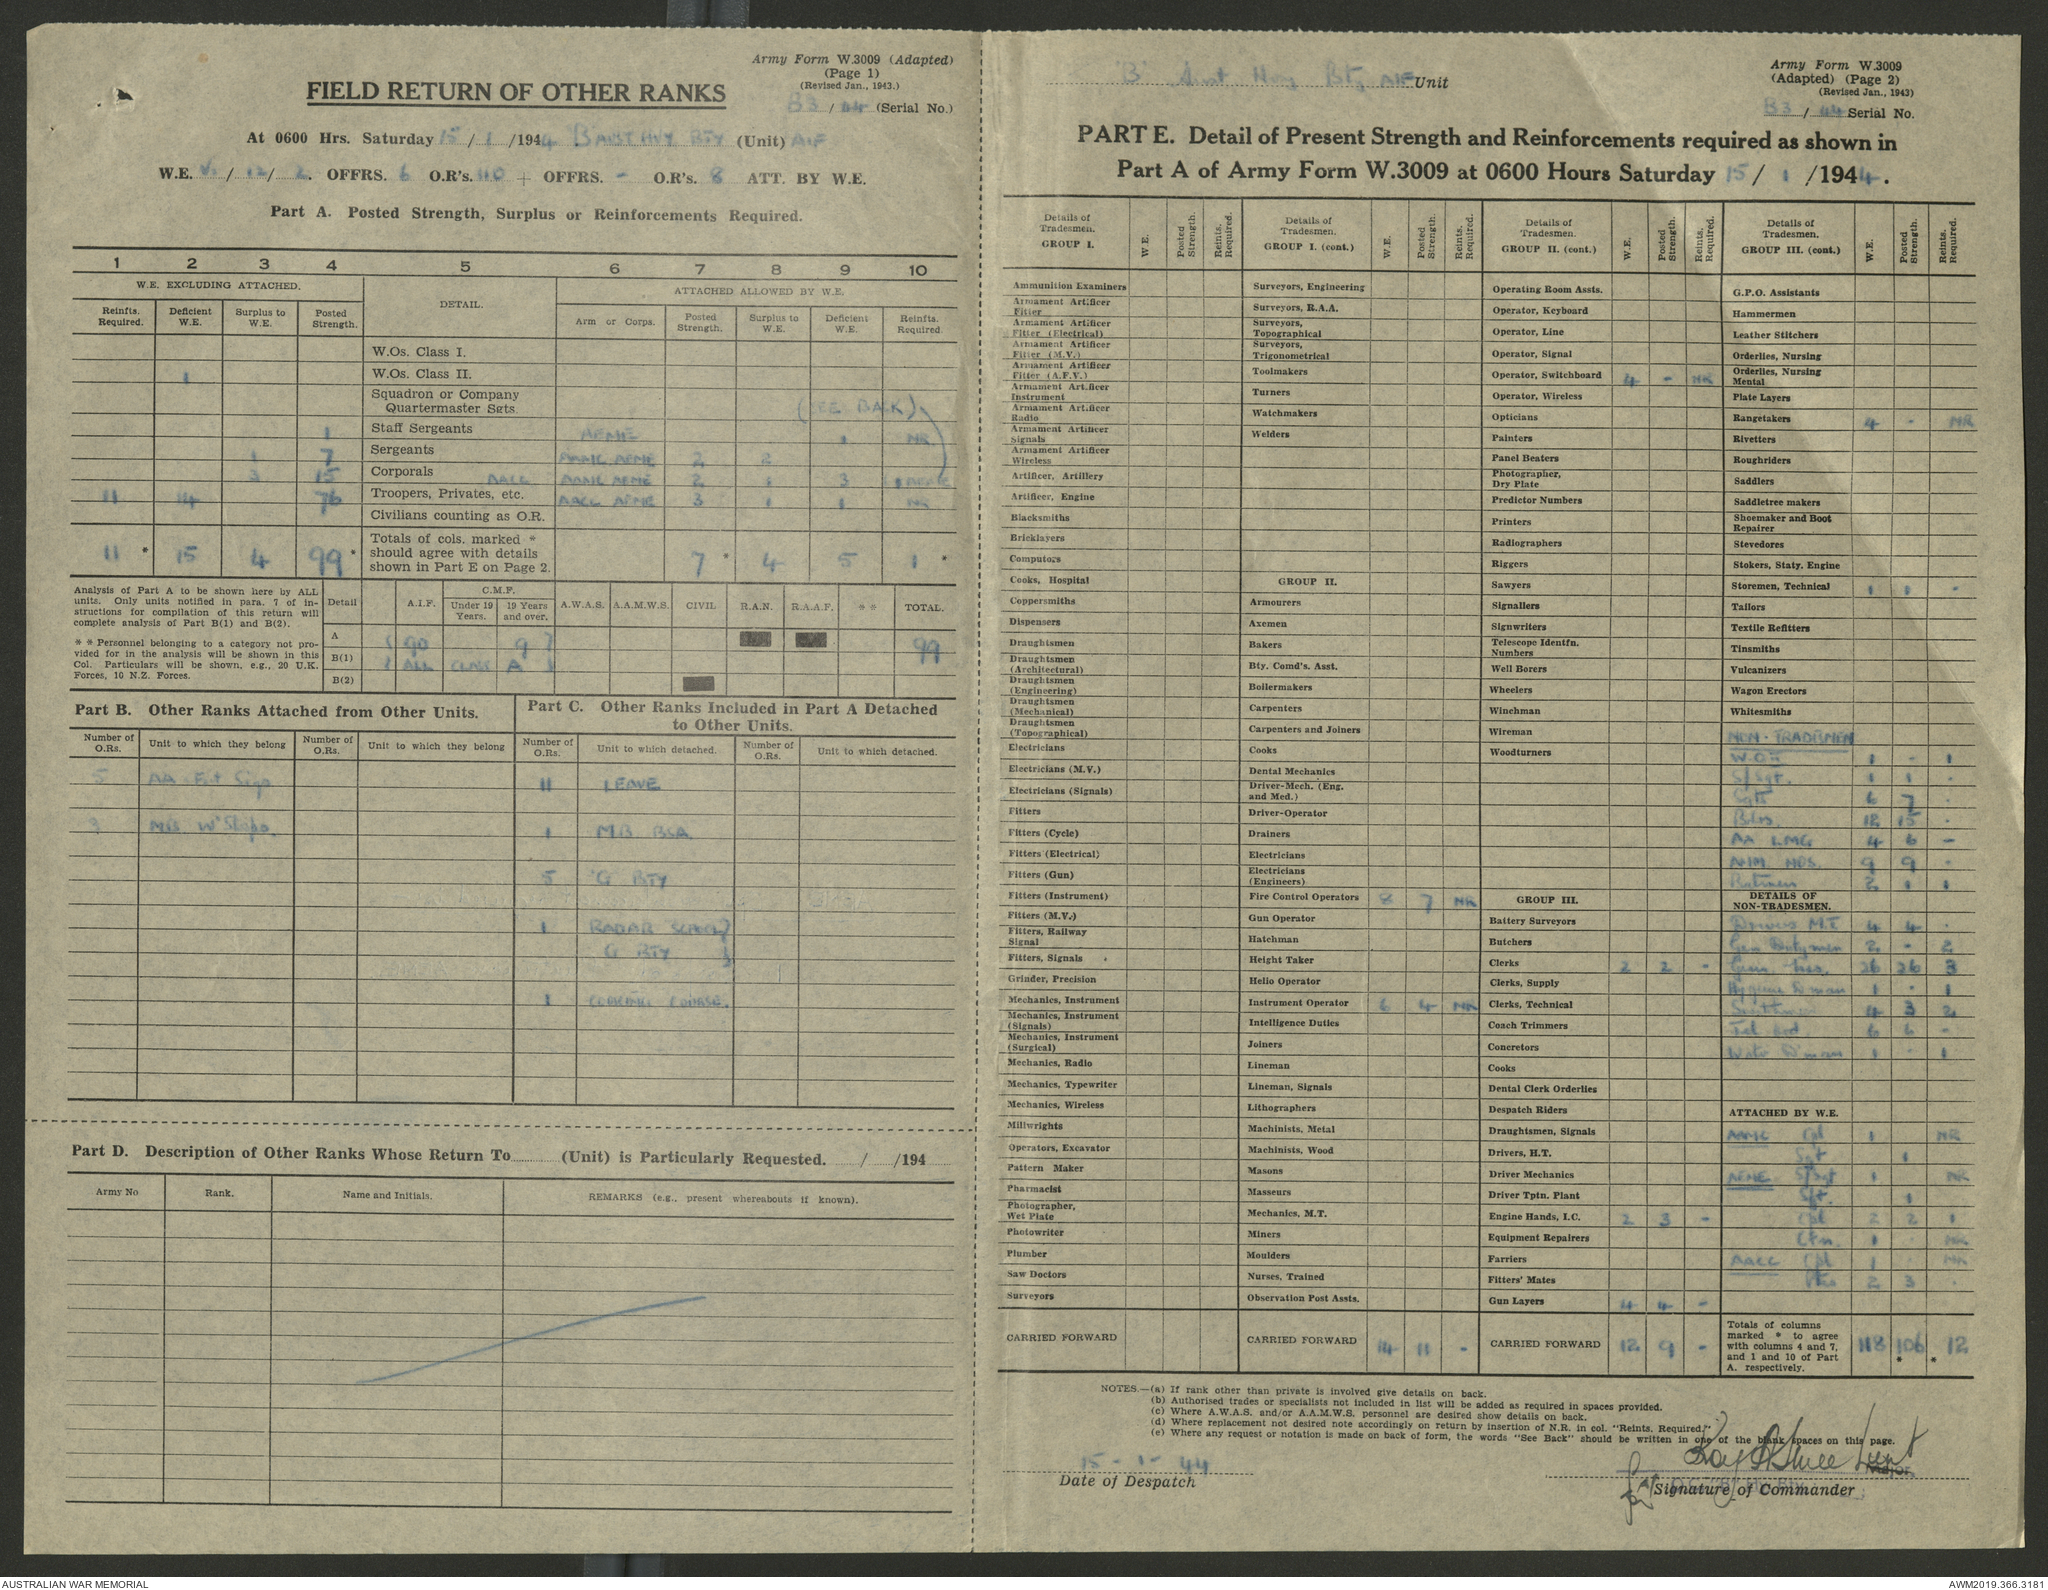 Army Form W.3009 (Adapted)
(Page 1)
(Revised Jan., 1943.)
B3 / 44 (Serial No.)
FIELD RETURN OF OTHER RANKS
At 0600 Hrs. Saturday 15 / 1 /1944 'B' AUST HVY BTY (Unit) AIF
W.E. / 12 / 2. OFFRS. 6 O.R's. 110 + OFFRS. - O.R's. 8 ATT. BY W.E.
Part A. Posted Strength, Surplus or Reinforcements Required.
1 2 3 4 5 6 7 8 9 10
W.E. EXCLUDING ATTACHED. DETAIL. ATTACHED ALLOWED BY W.E.
Reinfts. Required. Deficient W.E. Surplus to W.E. Posted Strength. Arm or Corps. Posted Strength. Surplus to W.E. Deficient W.E. Reinfts. Required.
W.Os. Class I.
1 W.Os. Class II.
Squadron or Company
Quartermaster Sgts. (SEE BACK)
1 Staff Sergeants AEME 1 NR
1 7 Sergeants AAMC AEME 2 2
3 15 Corporals AACC AAMC AEME 2 1 3 1 AEME
11 14 76 Troopers, Privates, etc. AACC AEME 3 1 1 NR
Civilians counting as O.R.
11 * 15 4 99 * Totals of cols. marked * should agree with details shown in Part E on Page 2. 7 * 4 5 1 *
Analysis of Part A to be shown here by ALL
units. Only units notified in para. 7 of in-
structions for compilation of this return will
complete analysis of Part B(1) and B(2).
* * Personnel belonging to a category not pro-
vided for in the analysis will be shown in this
Col. Particulars will be shown, e.g., 20 U.K.
Forces, 10 N.Z. Forces.
Detail A.I.F. C.M.F. Under 19 Years. 19 Years and over. A.W.A.S. A.A.M.W.S. CIVIL R.A.N. R.A.A.F. * * TOTAL.
A 90 9 99
B(1) ALL CLASS A
B(2)
Part B. Other Ranks Attached from Other Units.
Number of O.Rs. Unit to which they belong Number of O.Rs. Unit to which they belong
5 AA Sigs
W'Shops.
Part C. Other Ranks Included in Part A Detached
to Other Units.
Number of O.Rs. Unit to which detached. Number of O.Rs. Unit to which detached.
11 LEAVE
1 MB BSA
5 'G' BTY
1 RADAR SCHOOL
G BTY
1 COOKING COURSE.
Part D. Description of Other Ranks Whose Return To (Unit) is Particularly Requested. / /194
Army No Rank. Name and Initials. REMARKS (e.g., present whereabouts if known).
'B' Aust Hvy Bty AIF Unit
Army Form W.3009
(Adapted) (Page 2)
(Revised Jan., 1943)
B3 / 44 Serial No.
PART E. Detail of Present Strength and Reinforcements required as shown in
Part A of Army Form W.3009 at 0600 Hours Saturday 15 / 1 /1944.
Details of Tradesmen. GROUP I. W.E. Posted Strength. Reints. Required.
Ammunition Examiners
Armament Artificer Fitter
Armament Artificer Fitter (Electrical)
Armament Artificer Fitter (M.V.)
Armament Artificer Fitter (A.F.V.)
Armament Artificer Instrument
Armament Artificer Radio
Armament Artificer Signals
Armament Artificer Wireless
Artificer, Artillery
Artificer, Engine
Blacksmiths
Bricklayers
Computors
Cooks, Hospital
Coppersmiths
Dispensers
Draughtsmen
Draughtsmen (Architectural)
Draughtsmen (Engineering)
Draughtsmen (Mechanical)
Draughtsmen (Topographical)
Electricians
Electricians (M.V.)
Electricians (Signals)
Fitters
Fitters (Cycle)
Fitters (Electrical)
Fitters (Gun)
Fitters (Instrument)
Fitters (M.V.)
Fitters, Railway Signal
Fitters, Signals
Grinder, Precision
Mechanics, Instrument
Mechanics, Instrument (Signals)
Mechanics, Instrument (Surgical)
Mechanics, Radio
Mechanics, Typewriter
Mechanics, Wireless
Millwrights
Operators, Excavator
Pattern Maker
Pharmacist
Photographer, Wet Plate
Photowriter
Plumber
Saw Doctors
Surveyors
CARRIED FORWARD
Details of Tradesmen. GROUP I. (cont.) W.E. Posted Strength. Reints. Required.
Surveyors, Engineering
Surveyors, R.A.A.
Surveyors, Topographical
Surveyors, Trigonometrical
Toolmakers
Turners
Watchmakers
Welders
GROUP II.
Armourers
Axemen
Bakers
Bty. Comd's. Asst.
Boilermakers
Carpenters
Carpenters and Joiners
Cooks
Dental Mechanics
Driver-Mech. (Eng. and Med.)
Driver-Operator
Drainers
Electricians
Electricians (Engineers)
Fire Control Operators 8 7 NR
Gun Operator
Hatchman
Height Taker
Helio Operator
Instrument Operator 6 4 NR
Intelligence Duties
Joiners
Lineman
Lineman, Signals
Lithographers
Machinists, Metal
Machinists, Wood
Masons
Masseurs
Mechanics, M.T.
Miners
Moulders
Nurses, Trained
Observation Post Assts.
CARRIED FORWARD 14 11 -
Details of Tradesmen. GROUP II. (cont.) W.E. Posted Strength. Reints. Required.
Operating Room Assts.
Operator, Keyboard
Operator, Line
Operator, Signal
Operator, Switchboard 4 - NR
Operator, Wireless
Opticians
Painters
Panel Beaters
Photographer, Dry Plate
Predictor Numbers
Printers
Radiographers
Riggers
Sawyers
Signallers
Signwriters
Telescope Identfn. Numbers
Well Borers
Wheelers
Winchman
Wireman
Woodturners
GROUP III.
Battery Surveyors
Butchers
Clerks 2 2 -
Clerks, Supply
Clerks, Technical
Coach Trimmers
Concretors
Cooks
Dental Clerk Orderlies
Despatch Riders
Draughtsmen, Signals
Drivers, H.T.
Driver Mechanics
Driver Tptn. Plant
Engine Hands, I.C. 2 3 -
Equipment Repairers
Farriers
Fitters' Mates
Gun Layers 4 4 -
CARRIED FORWARD 12 9 -
Details of Tradesmen. GROUP III. (cont.) W.E. Posted Strength. Reints. Required.
G.P.O. Assistants
Hammermen
Leather Stitchers
Orderlies, Nursing
Orderlies, Nursing Mental
Plate Layers
Rangetakers 4 - NR
Rivetters
Roughriders
Saddlers
Saddletree makers
Shoemaker and Boot Repairer
Stevedores
Stokers, Staty. Engine
Storemen, Technical 1 1 -
Tailors
Textile Refitters
Tinsmiths
Vulcanizers
Wagon Erectors
Whitesmiths
NON-TRADESMEN
W.O.II 1 - 1
S/Sgt. 1 1 -
Sgts 6 7 -
Bdrs. 12 15 -
AA LMG 4 6 -
AMM. NOS. 9 9 -
Batmen 2 1 1
DETAILS OF NON-TRADESMEN.
Drivers M.T. 4 4 -
Gen Dutymen 2 - 2
Gun Nos. 26 26 3
Hygiene D'man 1 - 1
4 3 2
Tel 6 6 -
Water D'man 1 - 1
ATTACHED BY W.E.
AAMC Cpl 1 NR
Sgt 1
AEME S/Sgt 1 NR
Sgt. 1
Cpl 2 2 1
Cfn. 1 NR
AACC Cpl 1 NR
Ptes 2 3 -
Totals of columns marked * to agree with columns 4 and 7, and 1 and 10 of Part A. respectively. 118 106 * 12 *
NOTES.—(a) If rank other than private is involved give details on back.
(b) Authorised trades or specialists not included in list will be added as required in spaces provided.
(c) Where A.W.A.S. and/or A.A.M.W.S. personnel are desired show details on back.
(d) Where replacement not desired note accordingly on return by insertion of N.R. in col. "Reints. Required."
(e) Where any request or notation is made on back of form, the words "See Back" should be written in one of the blank spaces on this page.
15 - 1 - 44
Date of Despatch
Lieut
Major
for
Signature of Commander
AUSTRALIAN WAR MEMORIAL
AWM2019.366.3181